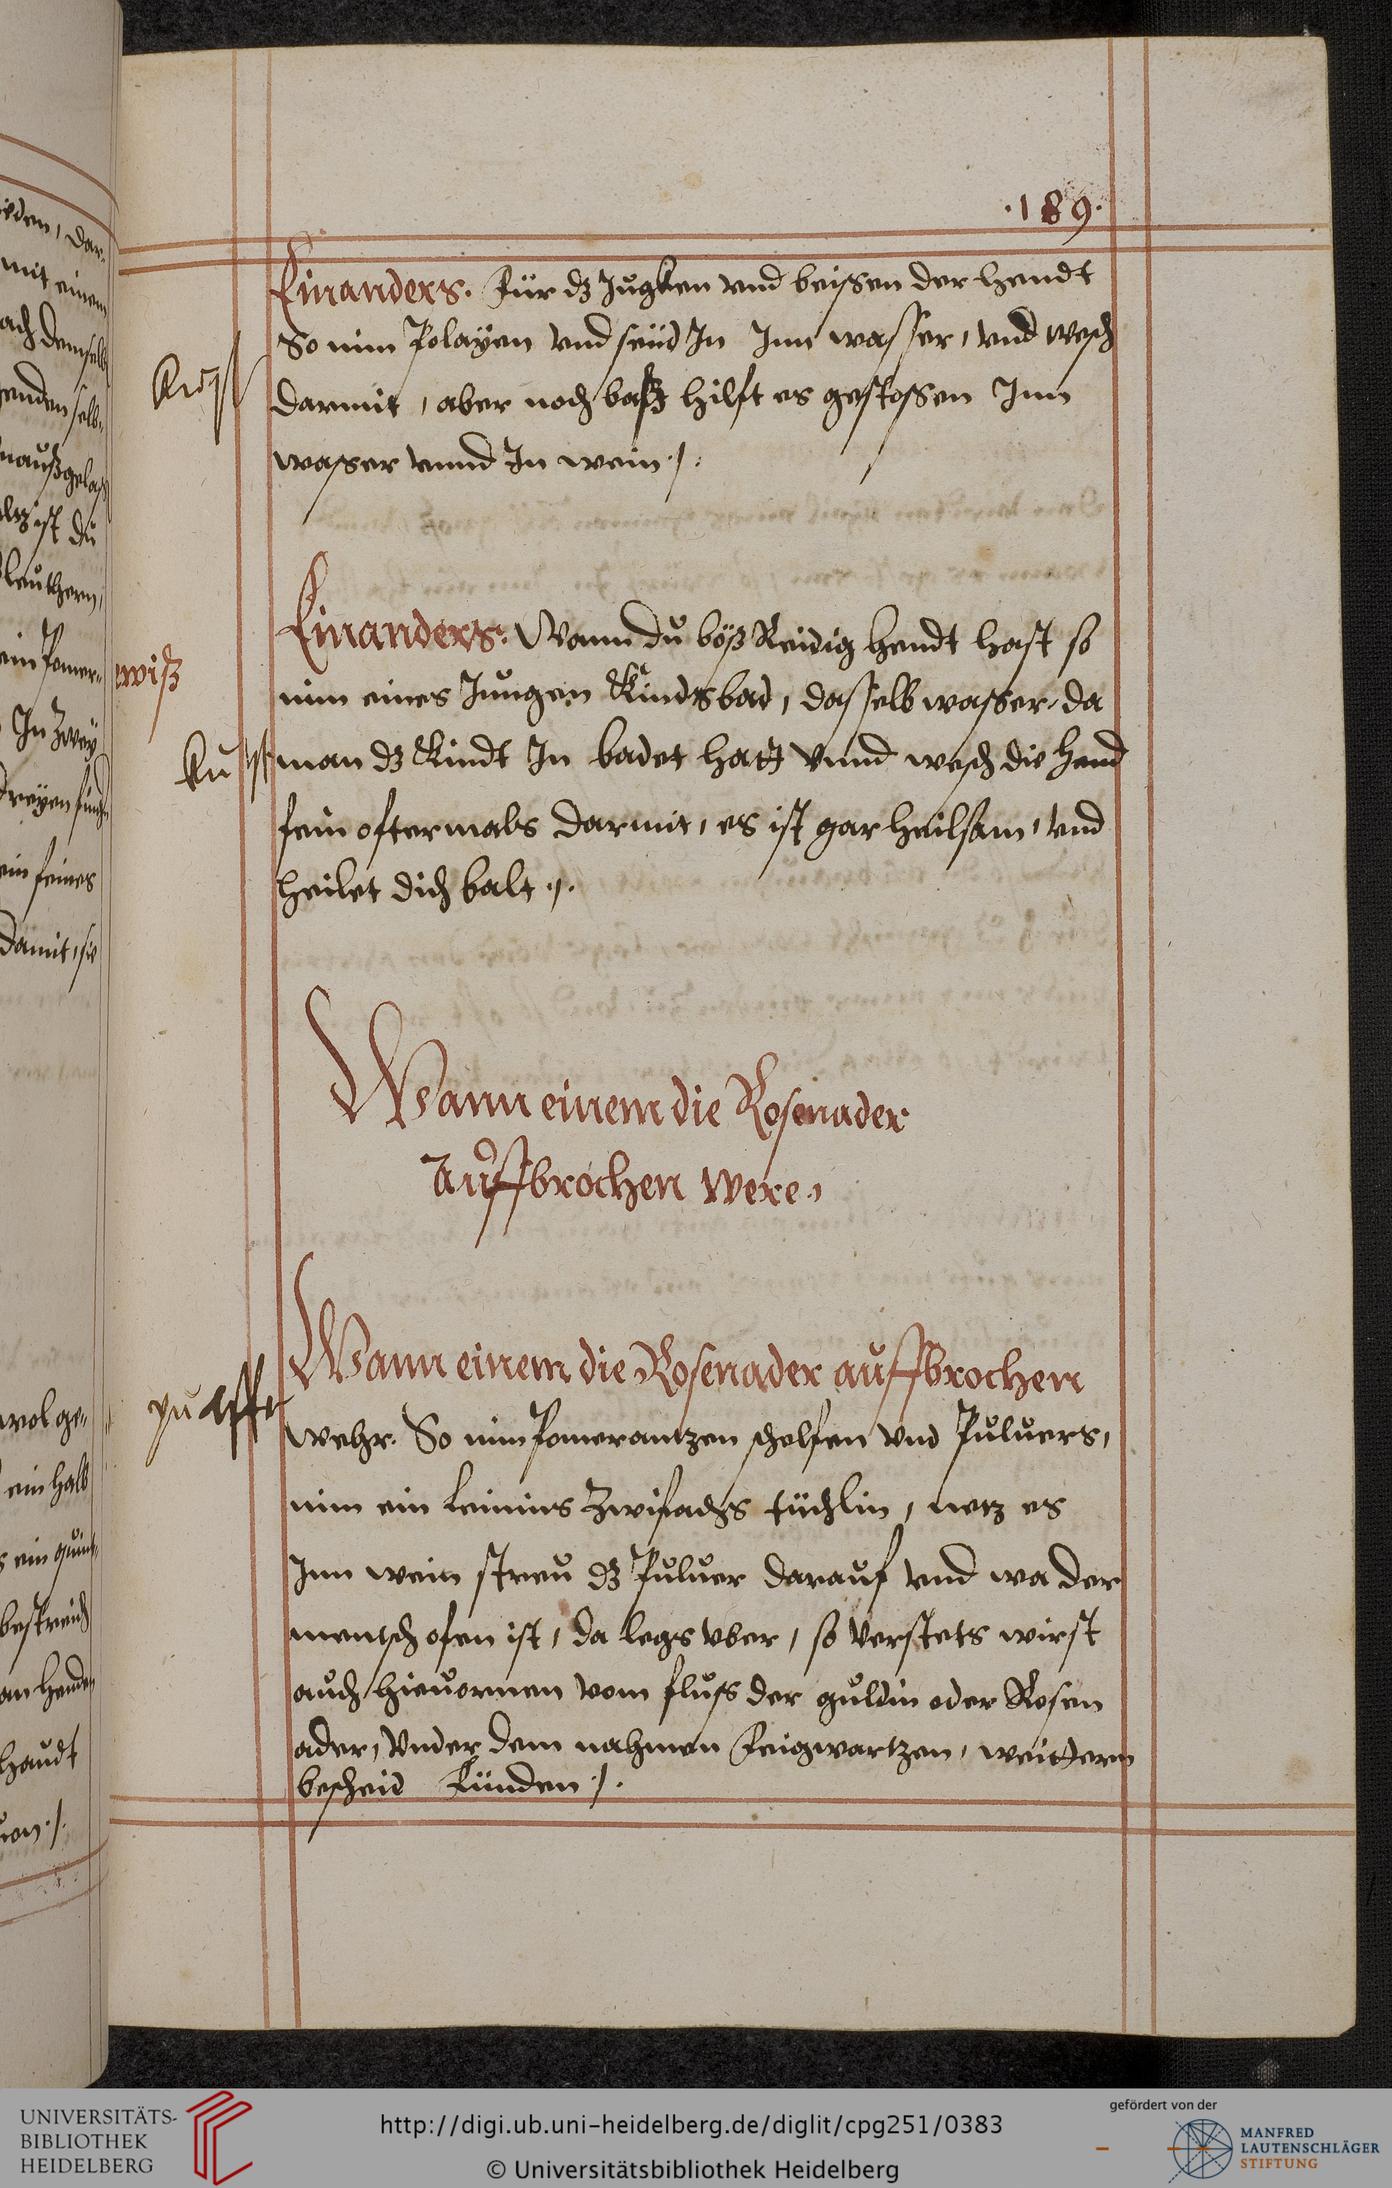 ·189·
Einanders. Für dz Jugken vnd beissen der hendt
So nim Polayen vnd seüd In Inn wasser, vnd wesch
darmit, aber noch baß hilfft es gestossen Inn
wasser vnnd In wein./.
Kunst
Einanders. Wann du böß Reidig hendt hast so
nim eines Jungen Kindsbad, dasselb wasser, da
man dz Kindt In badet hatt vnnd wesch die hend
fein oftermals darmit, es ist gar heilsam, vnd
heilet dich balt./.
wiß
Kunst
Wann einem die Rosenader
auffbrochen were,
Wann einem die Rosenader auffbrochen
wehr. So nim Pomerantzen schelfen vnd Puluers,
nim ein leinins zwifachs tüchlin, netz es
Inn wein streu dz Puluer darauf vnd wa der
mentsch ofen ist, da legs vber, so verstets wirst
auch hieuornen vom fluss der guldin oder Rosen
ader, vnder dem nahmen Feigwartzen, weittern
bescheid Fünden./.
zu
mit einem
ein Pomer-
In zwey
ein feines
damit, sie
wol ge-
ein halb
bestreich
an henden
haudt
UNIVERSITÄTS-
BIBLIOTHEK
HEIDELBERG
http://digi.ub.uni-heidelberg.de/diglit/cpg251/0383
© Universitätsbibliothek Heidelberg
gefördert von der
MANFRED
LAUTENSCHLÄGER
STIFTUNG